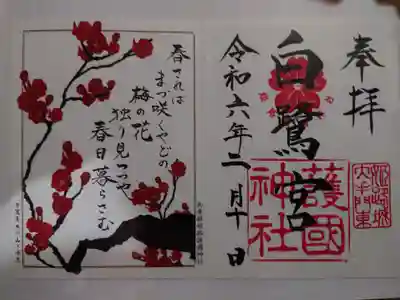 奉拝
白鷺宮
護國
神社
姫路城
大手門東
令和六年二月十日
春されは
まづ咲くやどの
梅の花
独り見つつや
春日暮らさむ